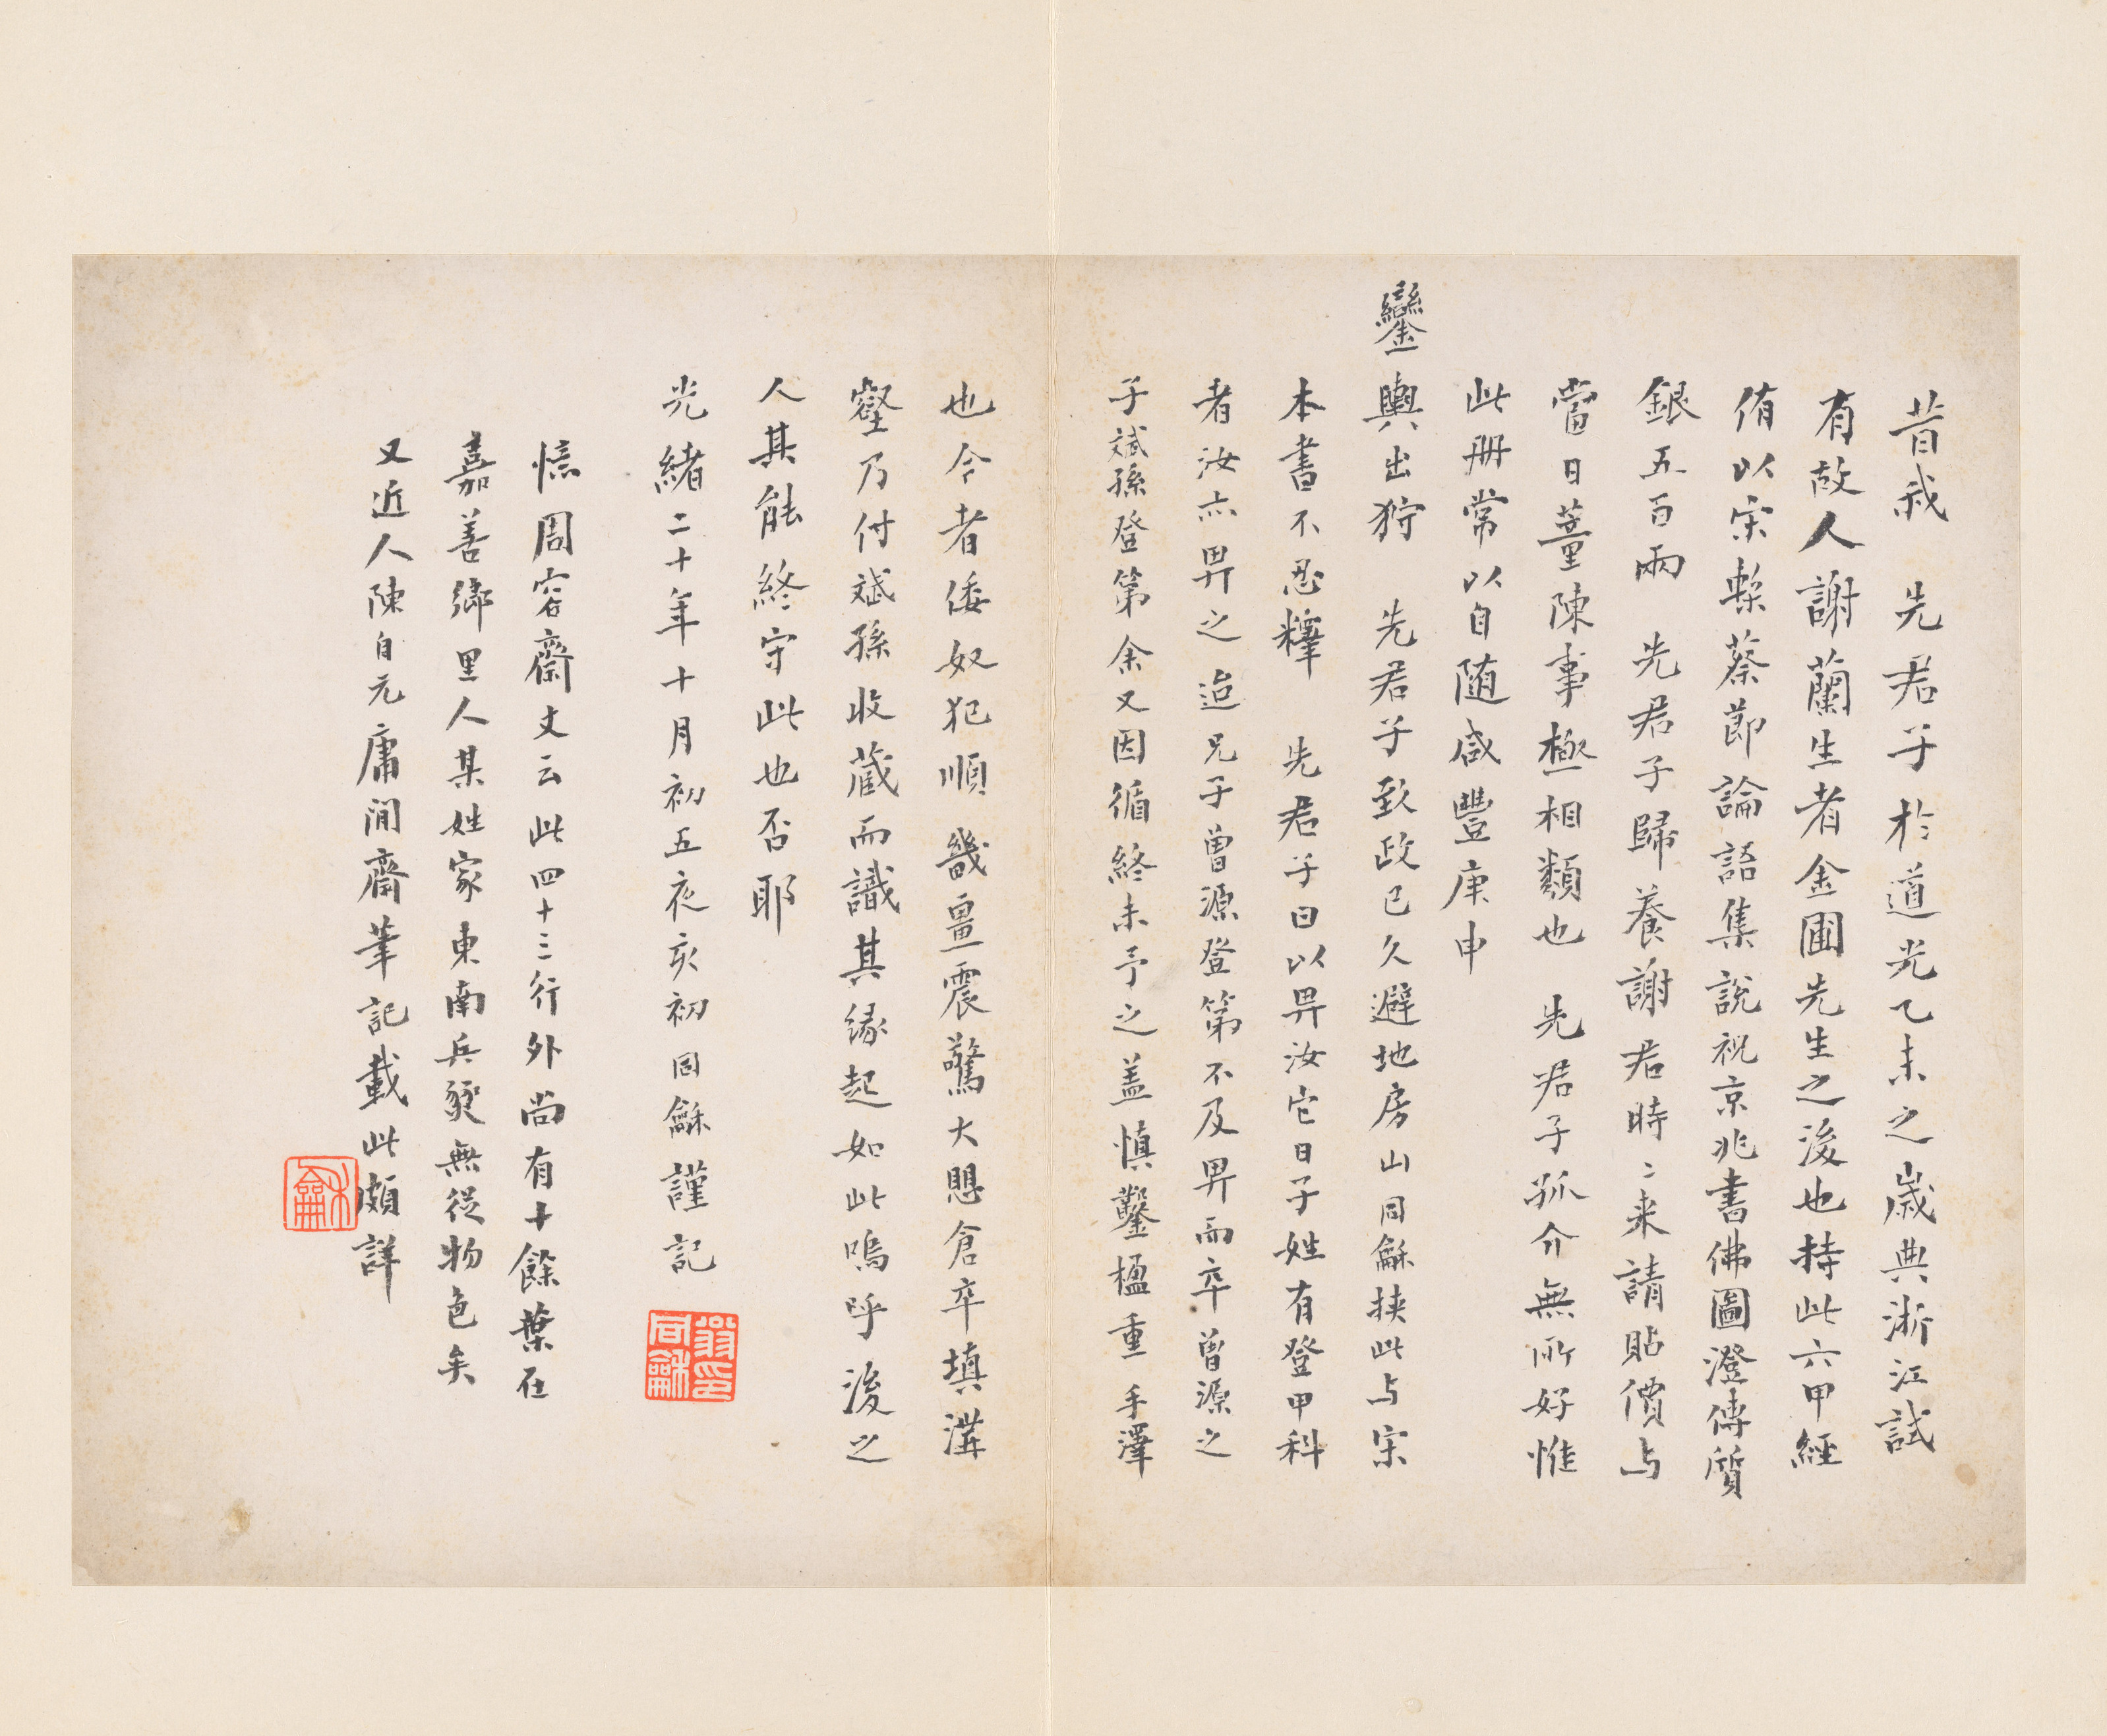 昔我　先君子於道光乙未之歲典浙江試
有故人謝蘭生者金圃先生之後也持此六甲經
侑以宋槧蔡節論語集說祝京兆書佛圖澄傳質
銀五百兩　先君子歸養謝君時〻来請貼價与
當日董陳事極相類也　先君子孤介無所好惟
此册常以自随咸豐庚申
鑾輿出狩　先君子致政已久避地房山同龢挟此与宋
本書不忍釋　先君子曰以畀汝它日子姓有登甲科
者汝亦畀之迨兄子曾源登第不及畀而卒曾源之
子斌孫登第余又因循終未予之盖慎鑿楹重手澤
也今者倭奴犯順畿畺震驚大懼倉卒填溝
壑乃付斌孫收藏而識其緣起如此嗚呼後之
人其能終守此也否耶
光緒二十年十月初五夜亥初同龢謹記
憶周容齋丈云此四十三行外尚有十餘葉在
嘉善鄉里人某姓家東南兵燹無從物色矣
又近人陳自元庸閒齋筆記載此頗詳
翁同龢印
龢